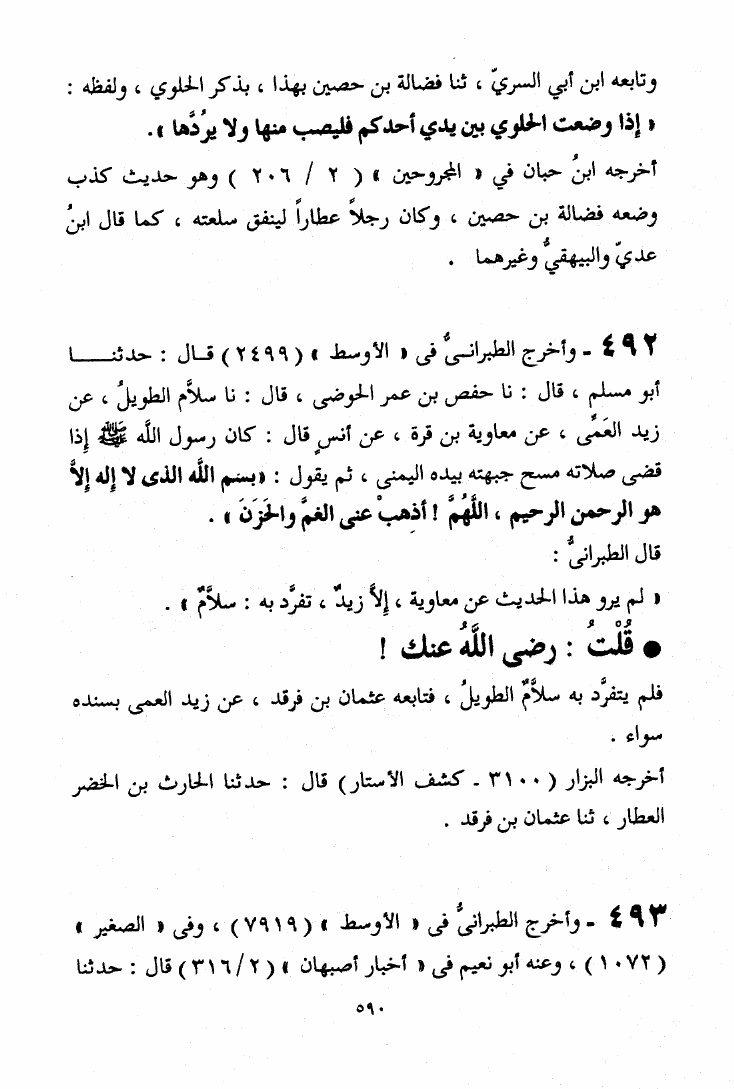 وتابعه ابن أبي السريّ ، ثنا فضالة بن حصين بهذا ، بذكر الحلوي ، ولفظه :
« إذا وضعت الحلوي بين يدي أحدكم فليصب منها ولا يرُدَّها » .
أخرجه ابنُ حبان في « المجروحين » ( ٢ / ٢٠٦ ) وهو حديث كذب
وضعه فضالة بن حصين ، وكان رجلاً عطاراً لينفق سلعته ، كما قال ابنُ
عديّ والبيهقيُّ وغيرهما .
٤٩٢ - وأخرج الطبرانـىُّ فى « الأوسط » (٢٤٩٩) قـال : حدثنـــا
أبو مسلمٍ ، قال : نا حفص بن عمر الحوضى ، قال : نا سلاَّم الطويلُ ، عن
زيد العَمِّى ، عن معاوية بن قرة ، عن أنسٍ قال : كان رسول الله ﷺ إذا
قضى صلاته مسح جبهته بيده اليمنى ، ثم يقول : «بسم الله الذى لا إله إلاَّ
هو الرحمن الرحيم ، اللَّهُمَّ ! أذهبْ عنى الغمَّ والحَزَنَ » .
قال الطبرانىُّ :
« لم يرو هذا الحديث عن معاوية ، إلاَّ زيدٌ ، تفرَّد به : سلاَّمٌ » .
● قُلْتُ : رضى اللَّهُ عنك !
فلم يتفرَّد به سلاَّمٌ الطويلُ ، فتابعه عثمان بن فرقد ، عن زيد العمى بسنده
سواء .
أخرجه البزار (٣١٠٠ - كشف الأستار) قال : حدثنا الحارث بن الخضر
العطار ، ثنا عثمان بن فرقد .
٤٩٣ - وأخرج الطبرانىُّ فى « الأوسط » (٧٩١٩) ، وفى « الصغير »
(١٠٧٢) ، وعنه أبو نعيم فى « أخبار أصبهان » (٣١٦/٢) قال : حدثنا
٥٩٠